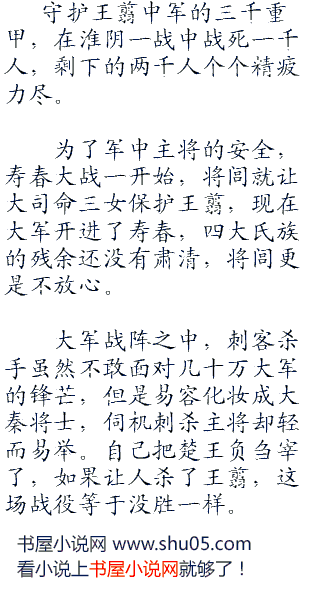 守护王翦中军的三千重
甲，在淮阴一战中战死一千
人，剩下的两千人个个精疲
力尽。
为了军中主将的安全，
寿春大战一开始，将闾就让
大司命三女保护王翦，现在
大军开进了寿春，四大氏族
的残余还没有肃清，将闾更
是不放心。
大军战阵之中，刺客杀
手虽然不敢面对几十万大军
的锋芒，但是易容化妆成大
秦将士，伺机刺杀主将却轻
而易举。自己把楚王负刍宰
了，如果让人杀了王翦，这
场战役等于没胜一样。
书屋小说网 www.shu05.com
看小说上书屋小说网就够了！